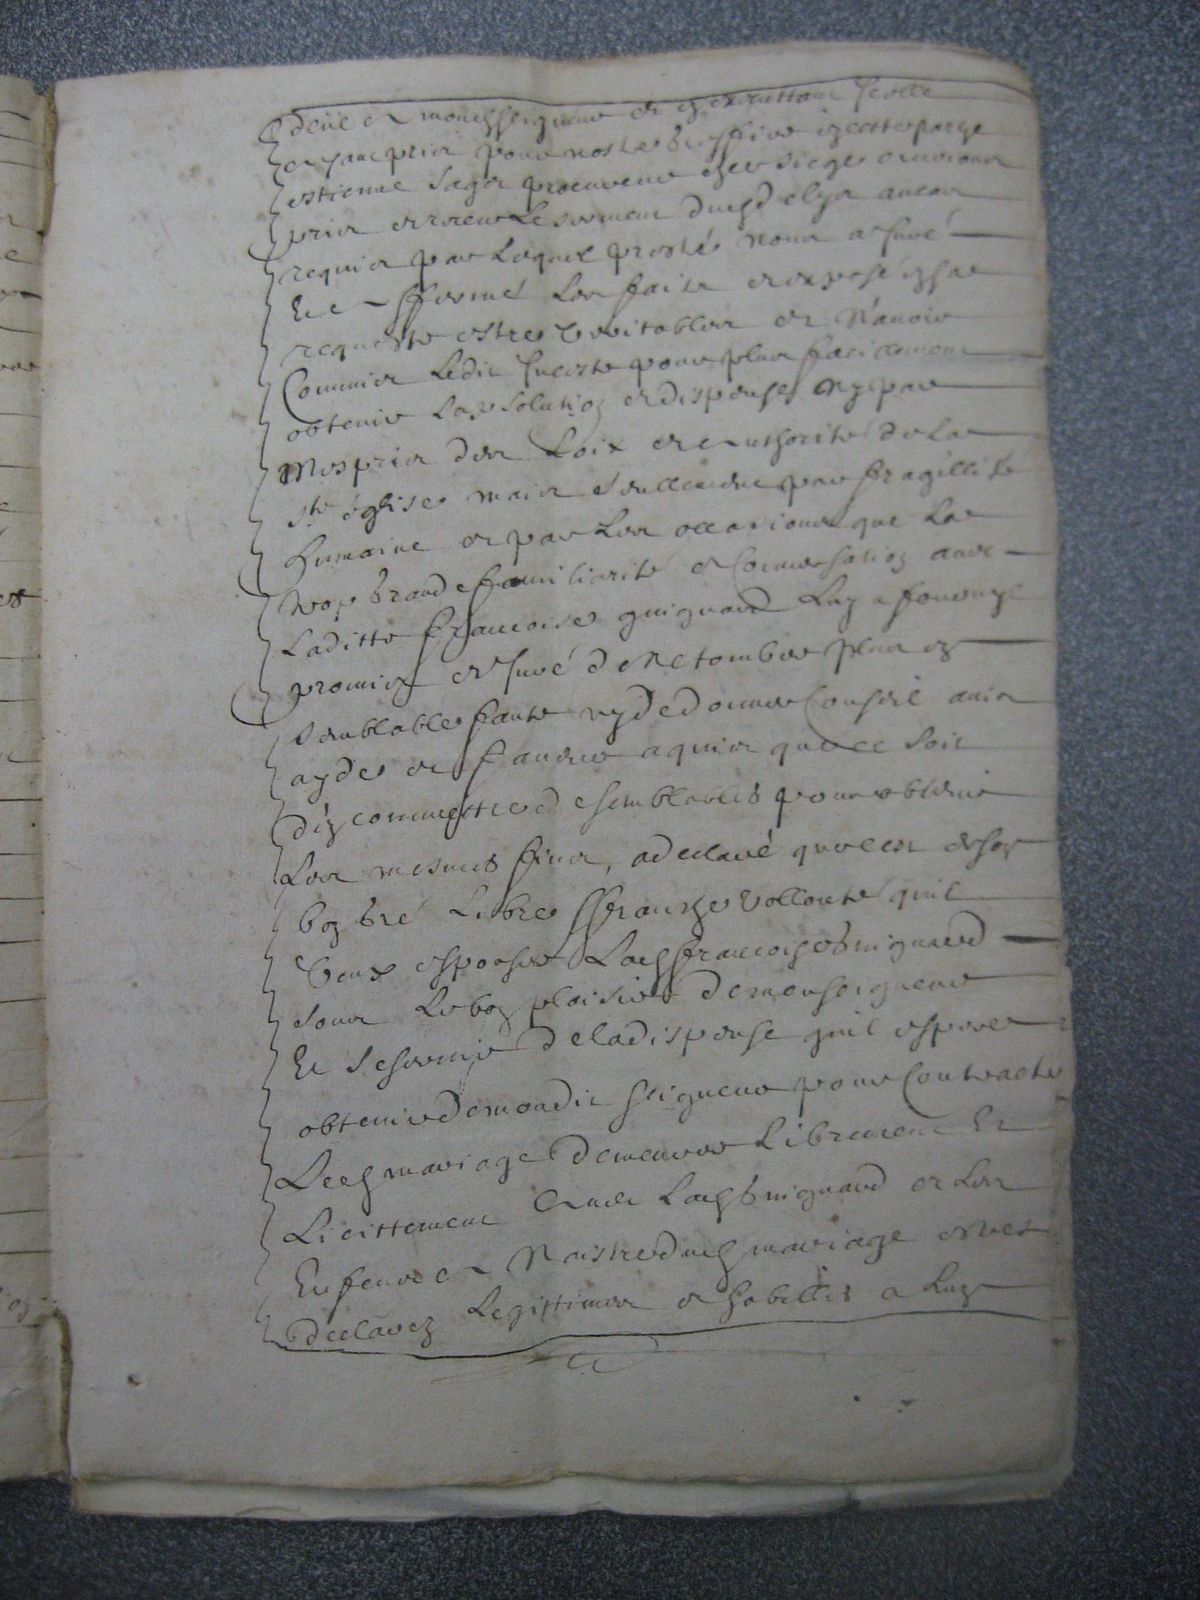 de mondseigneur et en executtant Icelle
ayant pris pour nostre greffier en cette partye
estienne sager procureur ez sieges avons
pris et receu le serment dud elya aucas
requier par lequel presté nous a Juré
Et affirmé les faits et exposé en sa
requeste estre veritables et N'avoir
Commis ledit Inceste pour plus facillement
obtenir l'absolution et dispense Ny par
Mespris des Loix et authorité de la
ste église mais seullement par fragillité
humaine et par les occasions que la
trop grande familiarité et Conversation avec
Laditte francoise guignard Luy a fourny
promix et Juré de Ne tomber plus en
semblable faute ny de donner Conseil avis
ayde et faveur a quier que ce soit
d'en commettre de semblables pour obtenir
Les mesmes fins, a declaré que c'est de son
bon gré Libre & franche vollonté quil
veux espouser Lad francoise guignard
sous Le bon plaisir de monseigneur
Et se servir de la dispense quil espere
obtenir de mondit seigneur pour Contracter
Led mariage demeurer Librement Et
Licittement avec Lad guignard et Les
Enfens a Naistre dud mariage estres
declarez Legittimes et habilles a Luy